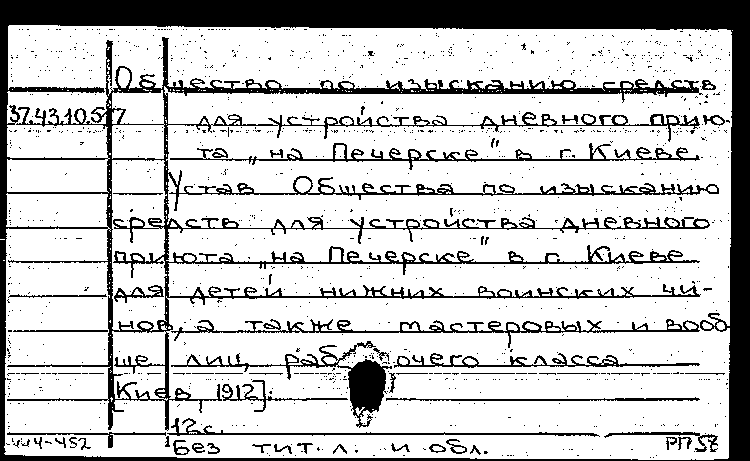 Общество по изысканию средств
37.43.10.577 для устройства дневного прию-
та „на Печерске" в г. Киеве.
Устав Общества по изысканию
средств для устройства дневного
приюта „на Печерске" в г. Киеве
для детей нижних воинских чи-
нов, а также мастеровых и вооб
ще лиц, рабочего класса
[Киев, 1912].
12с.
444-452 Без тит. л. и обл.